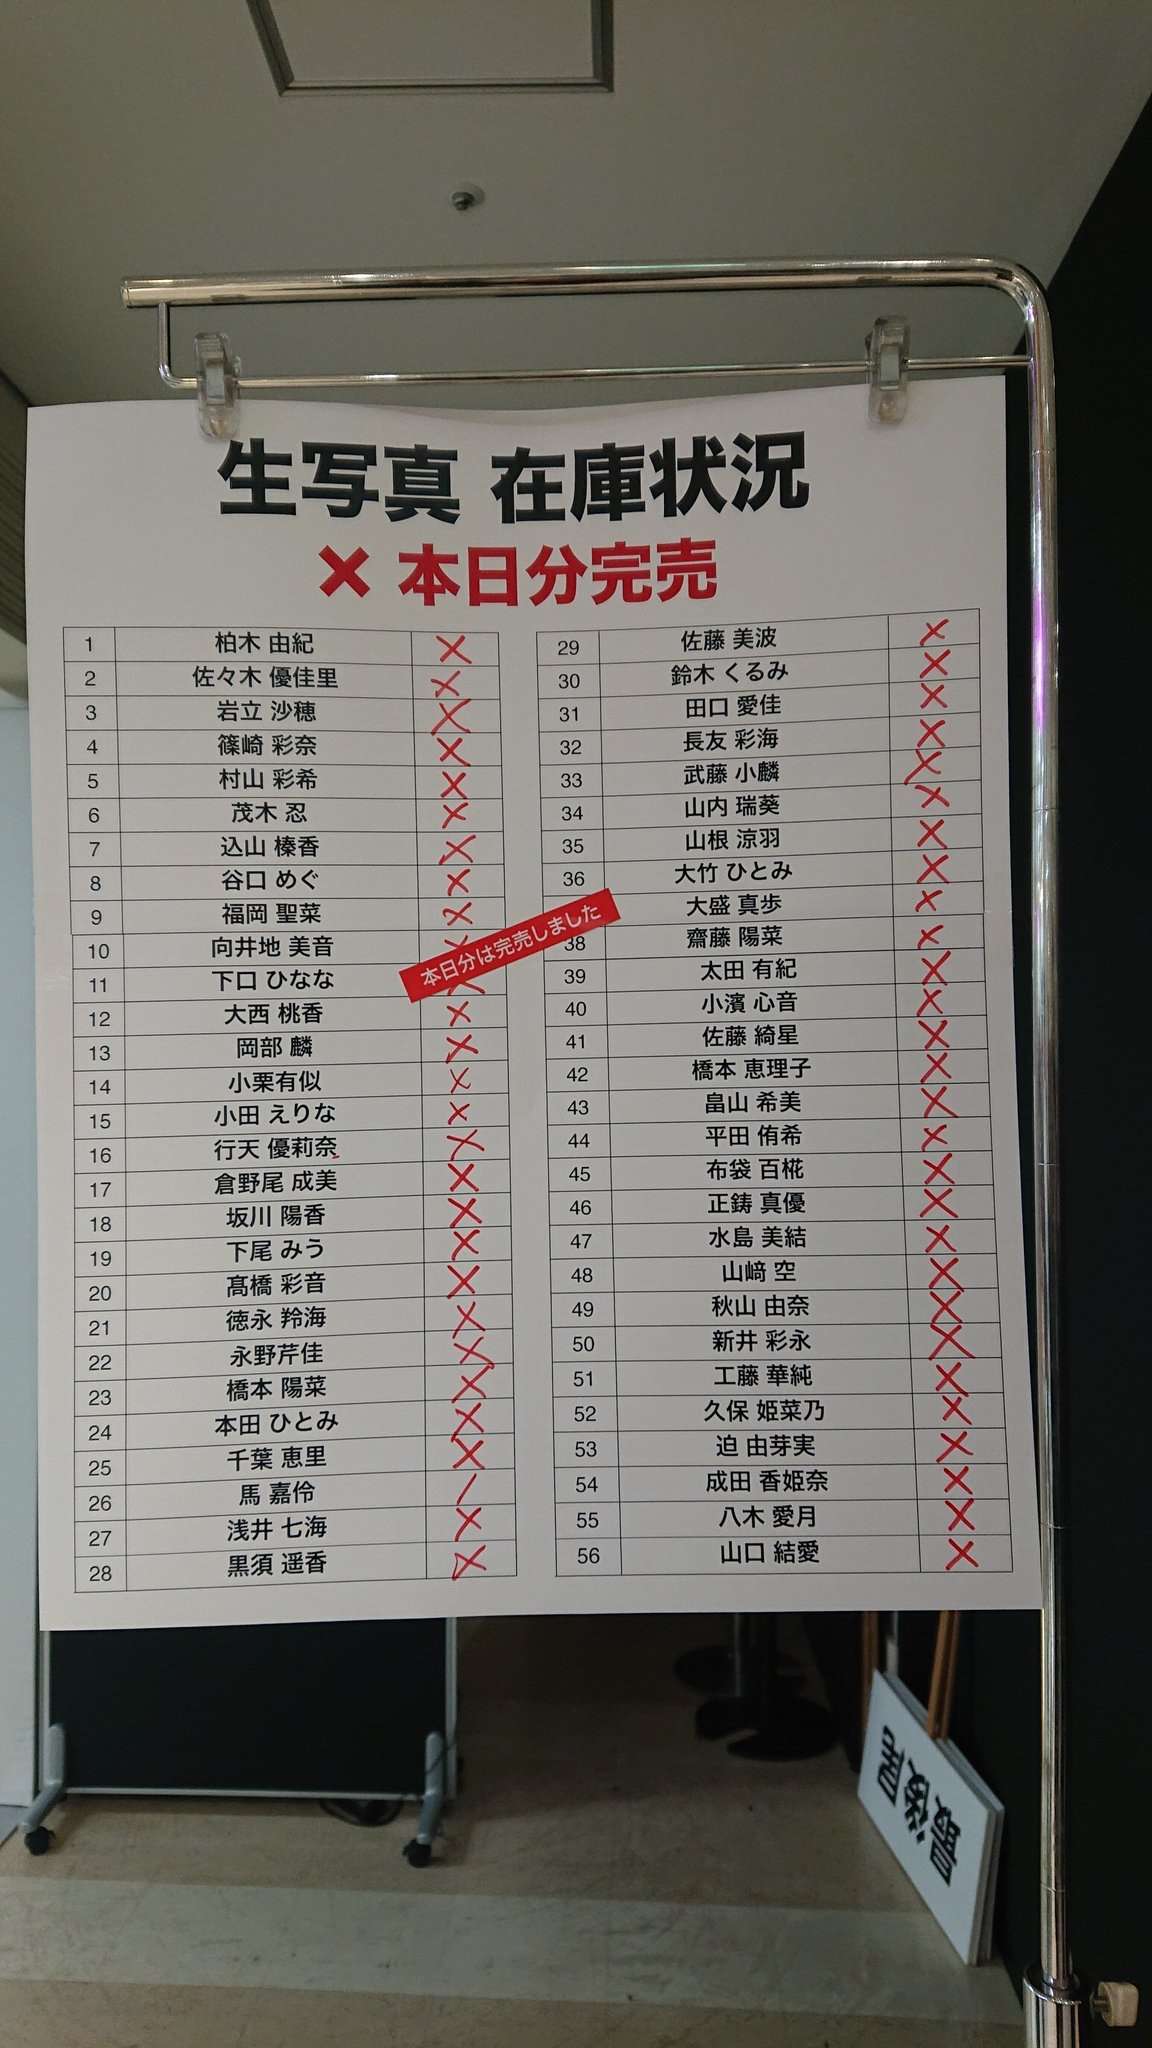 生写真 在庫状況
× 本日分完売
1 柏木 由紀 ×
2 佐々木 優佳里 ×
3 岩立 沙穂 ×
4 篠崎 彩奈 ×
5 村山 彩希 ×
6 茂木 忍 ×
7 込山 榛香 ×
8 谷口 めぐ ×
9 福岡 聖菜 ×
10 向井地 美音 ×
11 下口 ひなな ×
12 大西 桃香 ×
13 岡部 麟 ×
14 小栗有以 ×
15 小田 えりな ×
16 行天 優莉奈 ×
17 倉野尾 成美 ×
18 坂川 陽香 ×
19 下尾 みう ×
20 髙橋 彩音 ×
21 徳永 羚海 ×
22 永野芹佳 ×
23 橋本 陽菜 ×
24 本田 ひとみ ×
25 千葉 恵里 ×
26 馬 嘉伶 /
27 浅井 七海 ×
28 黒須 遥香 ×
本日分は完売しました
29 佐藤 美波 ×
30 鈴木 くるみ ×
31 田口 愛佳 ×
32 長友 彩海 ×
33 武藤 小麟 ×
34 山内 瑞葵 ×
35 山根 涼羽 ×
36 大竹 ひとみ ×
大盛 真歩 ×
38 齋藤 陽菜 ×
39 太田 有紀 ×
40 小濱 心音 ×
41 佐藤 綺星 ×
42 橋本 恵理子 ×
43 畠山 希美 ×
44 平田 侑希 ×
45 布袋 百椛 ×
46 正鋳 真優 ×
47 水島 美結 ×
48 山﨑 空 ×
49 秋山 由奈 ×
50 新井 彩永 ×
51 工藤 華純 ×
52 久保 姫菜乃 ×
53 迫 由芽実 ×
54 成田 香姫奈 ×
55 八木 愛月 ×
56 山口 結愛 ×
最後尾